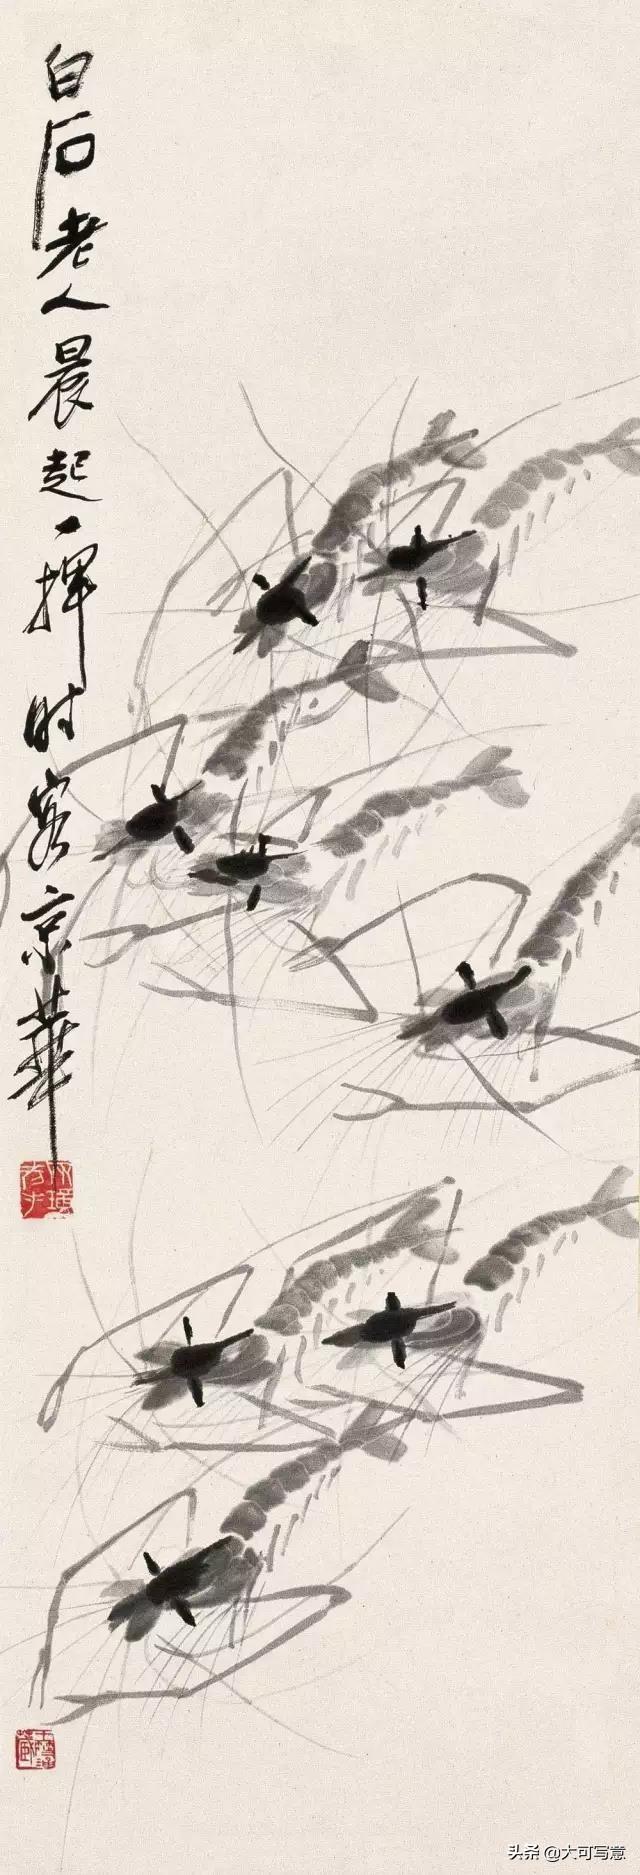 白石老人晨起一揮时客京華
头条 @大可写意